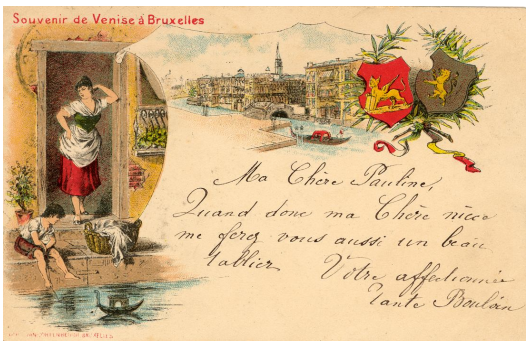 Souvenir de Venise à Bruxelles
Ma Chère Pauline,
Quand donc ma Chère nièce
me ferez vous aussi un beau
tablier Votre affectionnée
Tante